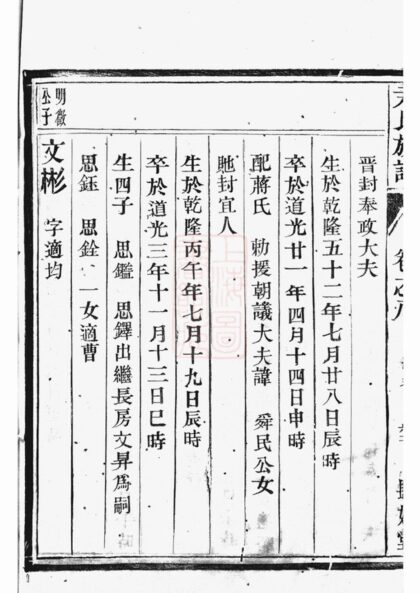 氏族譜
卷之八
晉封奉政大夫
生於乾隆五十二年七月廿八日辰時
卒於道光廿一年四月十四日申時
配蔣氏 勅援朝議大夫諱 舜民公女
貤封宜人
生於乾隆丙午年七月十九日辰時
卒於道光三年十一月十三日巳時
生四子 思鑑 思鐸出繼長房文昇為嗣
思鈺 思銓 一女適曹
明徵公子
文彬 字適均